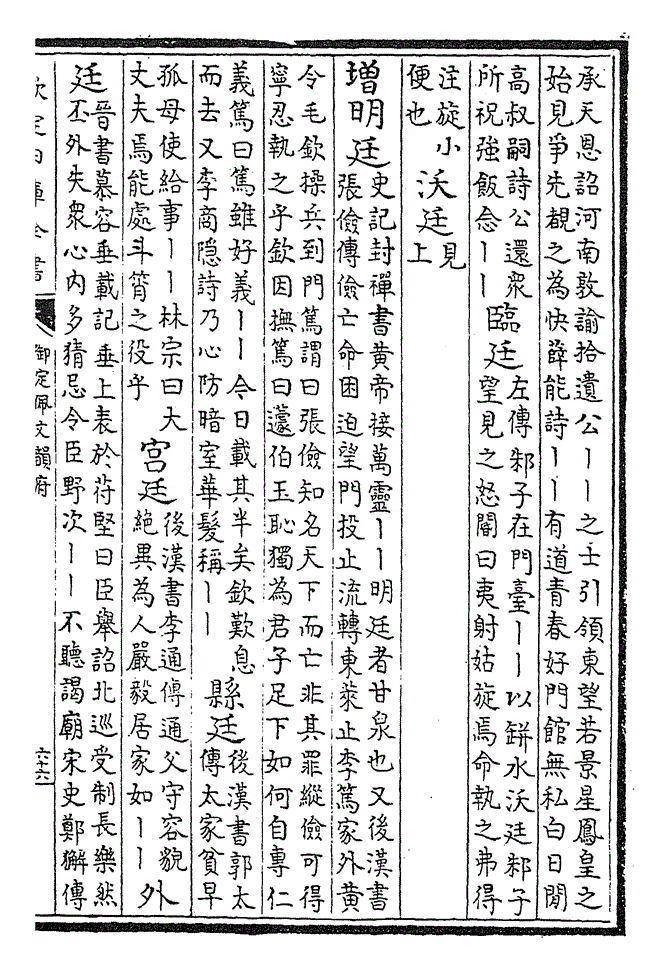 承天恩詔河南敦諭拾遺公丨丨之士引領東望若景星鳳皇之
始見爭先覩之為快薛能詩丨丨有道青春好門館無私白日閒
高叔嗣詩公還衆
所祝強飯念丨丨
臨廷
左傳邾子在門臺丨丨以缾水沃廷邾子
望見之怒閽曰夷射姑旋焉命執之弗得
注旋小
便也
沃廷
見
上
增明廷
史記封禪書黄帝接萬靈丨丨明廷者甘泉也又後漢書
張儉傳儉亡命困迫望門投止流轉東萊止李篤家外黄
令毛欽操兵到門篤謂曰張儉知名天下而亡非其罪縱儉可得
寧忍執之乎欽因撫篤曰蘧伯玉恥獨為君子足下如何自專仁
義篤曰篤雖好義丨丨今日載其半矣欽歎息
而去又李商隐詩乃心防暗室華髮稱丨丨
縣廷
後漢書郭太
傳太家貧早
孤母使給事丨丨林宗曰大
丈夫焉能處斗筲之役乎
宫廷
後漢書李通傳通父守容貌
絶異為人嚴毅居家如丨丨
外
廷
晉書慕容垂載記垂上表於苻堅曰臣舉詔北巡受制長樂然
丕外失衆心内多猜忌令臣野次丨丨不聽謁廟宋史鄭獬傳
欽定四庫全書
御定佩文韻府
六十六